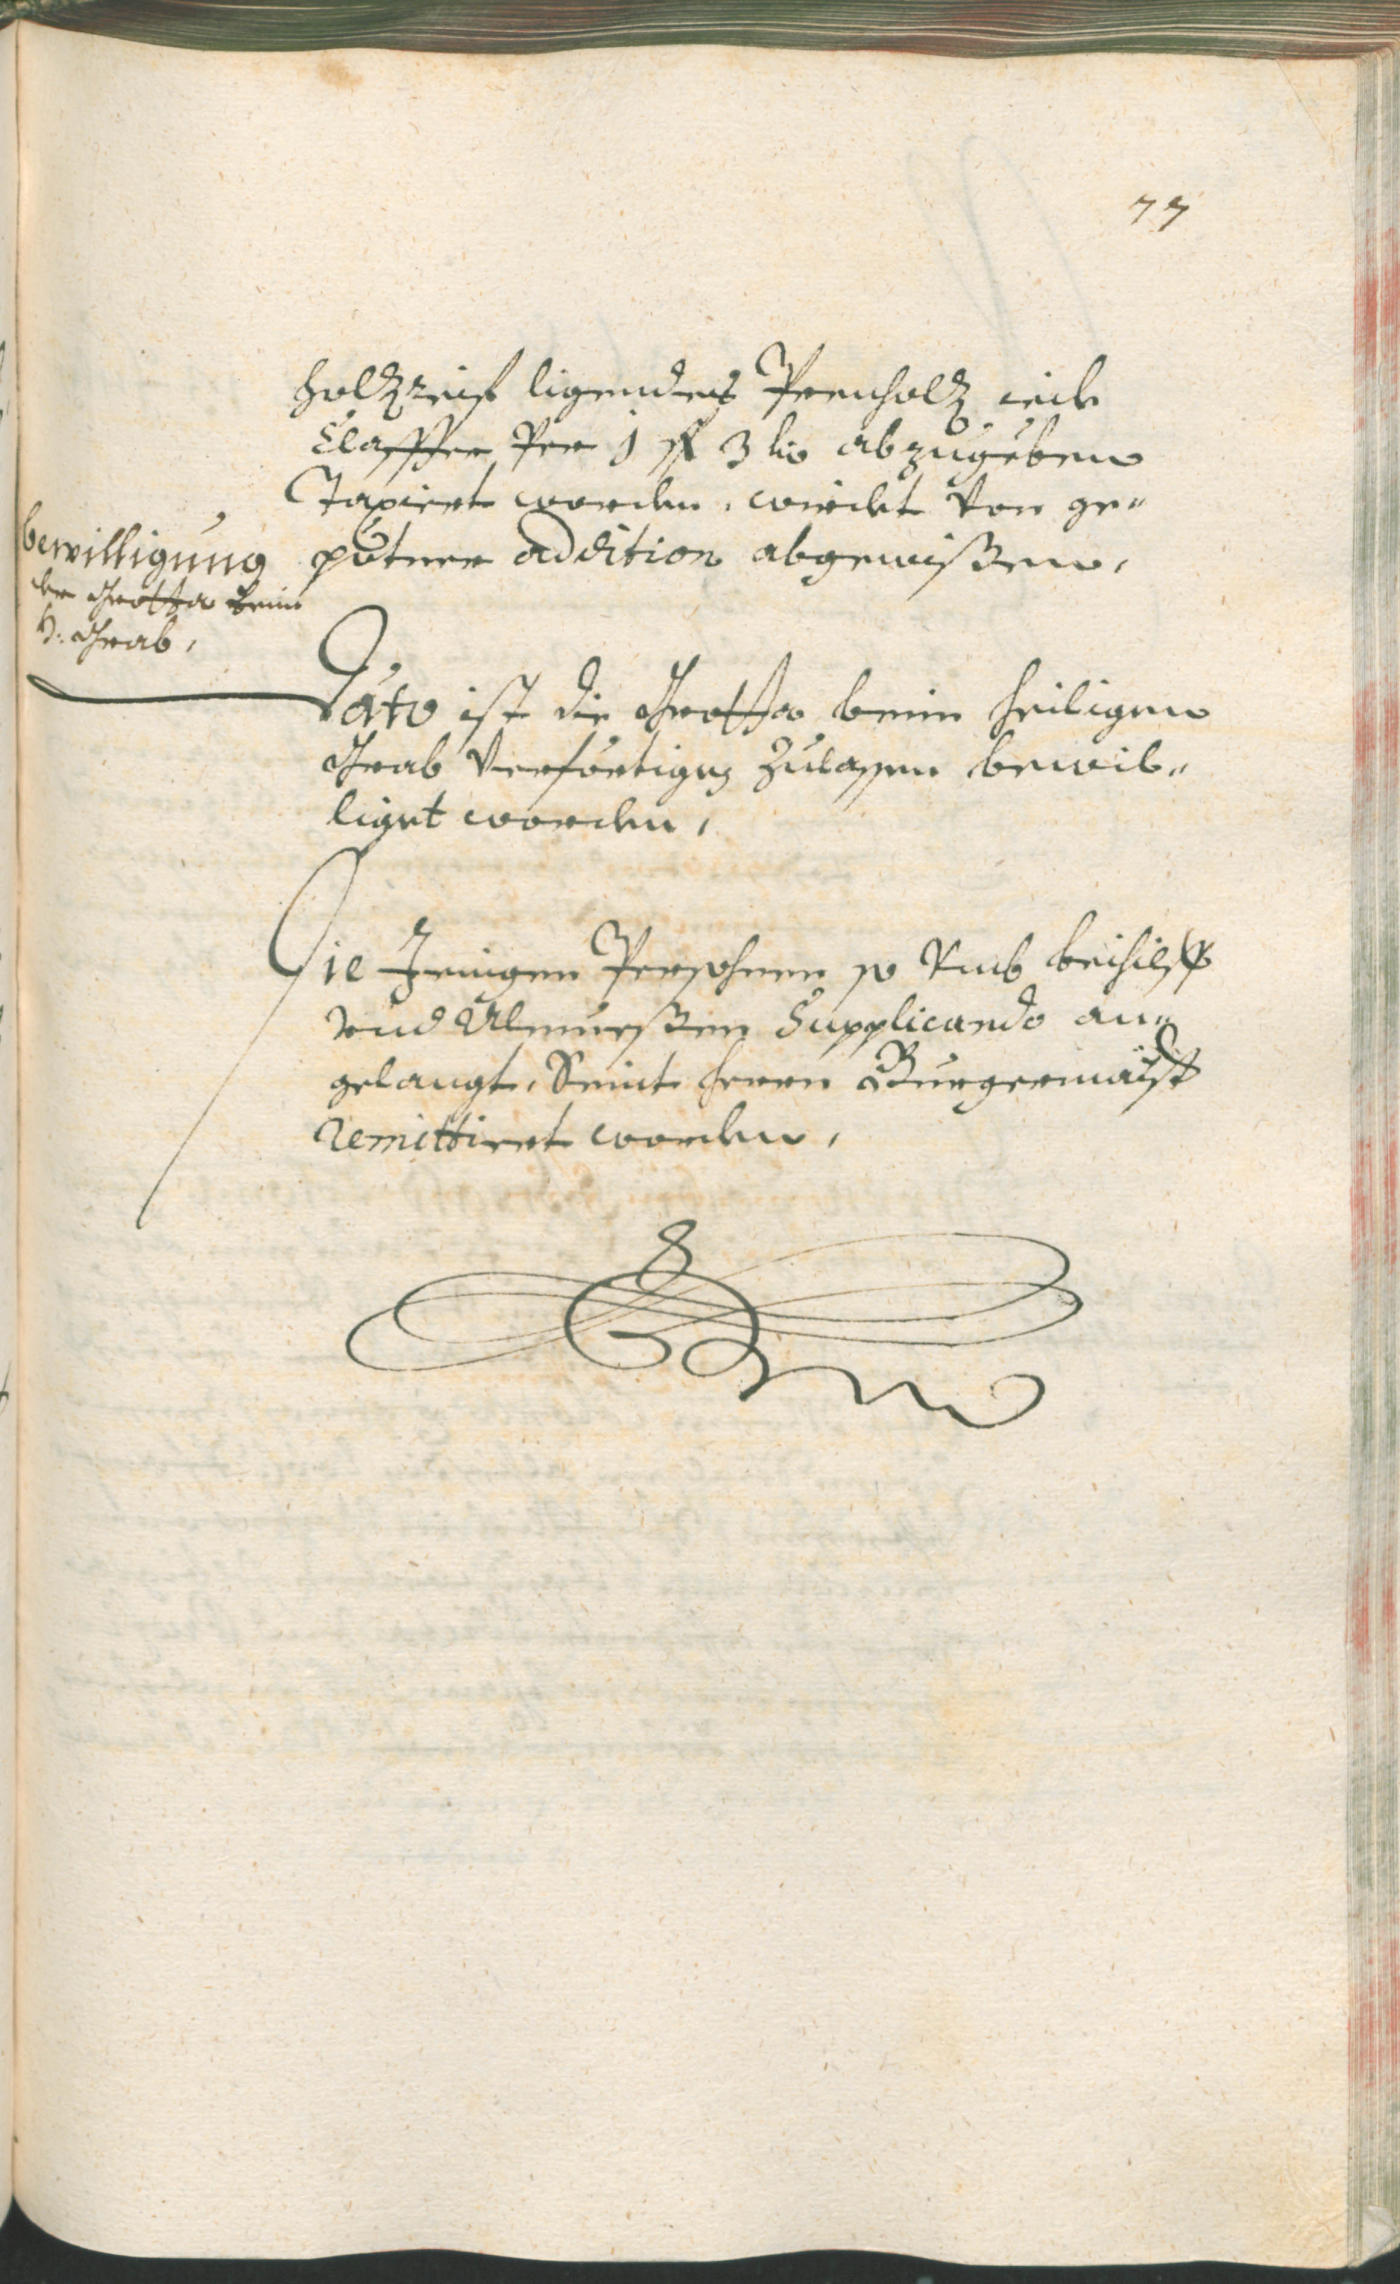 77
holzreiß ligendes Prenholz iede
Claffter Per 1 fl 3 kr abzugeben
Taxiert worden, würdet von ge„
petner addition abgewißen,
bewilligung
der Grotta beim
H: Grab,
Dato ist die Grotta beim heiligen
Grab verfertigen zulassen bewil„
liget worden,
Die Jenigen Persohnen so vmb beihilff
vnd Almueßen Supplicando an„
gelangt, Seint herrn Burgermaist
remittiert worden,